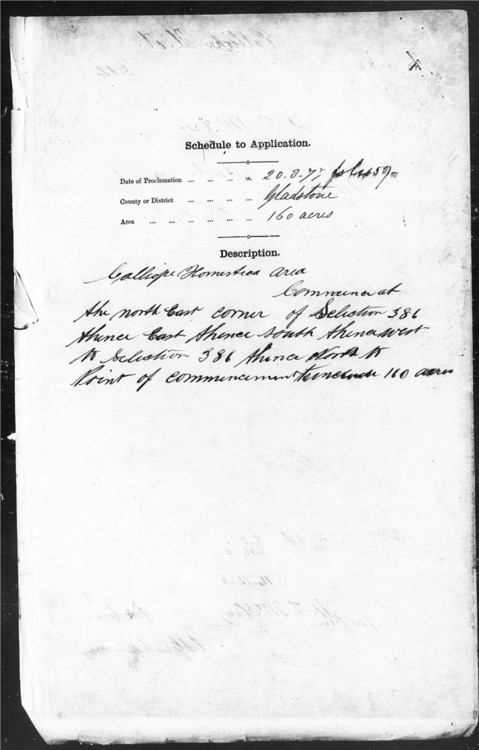 Schedule to Application.
Date of Proclamation ... ... ... ... 20.8.77
County or District ... ... ... ... Gladstone
Area ... ... ... ... ... ... 160 acres
Description.
Calliope Homestead area
Commence at
the north East corner of Selection 386
thence East thence south thence west
to Selection 386 thence North to
Point of commencement to include 160 acres